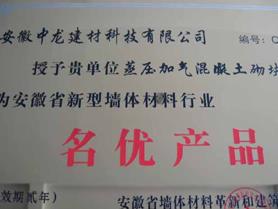 安徽中龙建材科技有限公司 编号:C
授予贵单位蒸压加气混凝土砌块
为安徽省新型墙体材料行业
名优产品
效期贰年) 安徽省墙体材料革新和建筑